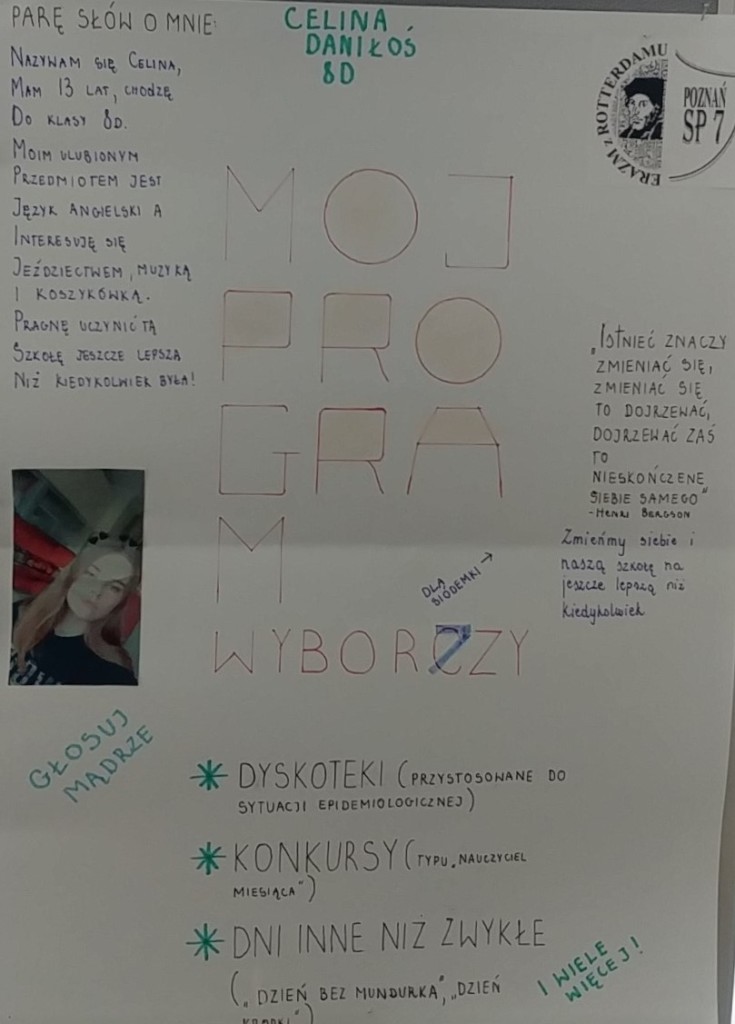 PARĘ SŁÓW O MNIE:
NAZYWAM SIĘ CELINA,
MAM 13 LAT, CHODZĘ
DO KLASY 8D.
MOIM ULUBIONYM
PRZEDMIOTEM JEST
JĘZYK ANGIELSKI A
INTERESUJĘ SIĘ
JEŹDZIECTWEM, MUZYKĄ
I KOSZYKÓWKĄ.
PRAGNĘ UCZYNIĆ TĄ
SZKOŁĘ JESZCZE LEPSZĄ
NIŻ KIEDYKOLWIEK BYŁA!
CELINA
DANIŁOŚ
8D
ERAZM z ROTTERDAMU
POZNAŃ
SP 7
MOJ
PRO
GRA
M
WYBORCZY
DLA
SIÓDEMKI →
„ISTNIEĆ ZNACZY
ZMIENIAĆ SIĘ,
ZMIENIAĆ SIĘ
TO DOJRZEWAĆ,
DOJRZEWAĆ ZAŚ
TO
NIESKOŃCZENIE
SIEBIE SAMEGO"
- HENRI BERGSON
Zmieńmy siebie i
naszą szkołę na
jeszcze lepszą niż
kiedykolwiek
GŁOSUJ
MĄDRZE
* DYSKOTEKI (PRZYSTOSOWANE DO
SYTUACJI EPIDEMIOLOGICZNEJ)
* KONKURSY (TYPU „NAUCZYCIEL
MIESIĄCA")
* DNI INNE NIŻ ZWYKŁE
(„DZIEŃ BEZ MUNDURKA", „DZIEŃ
I WIELE
WIĘCEJ!